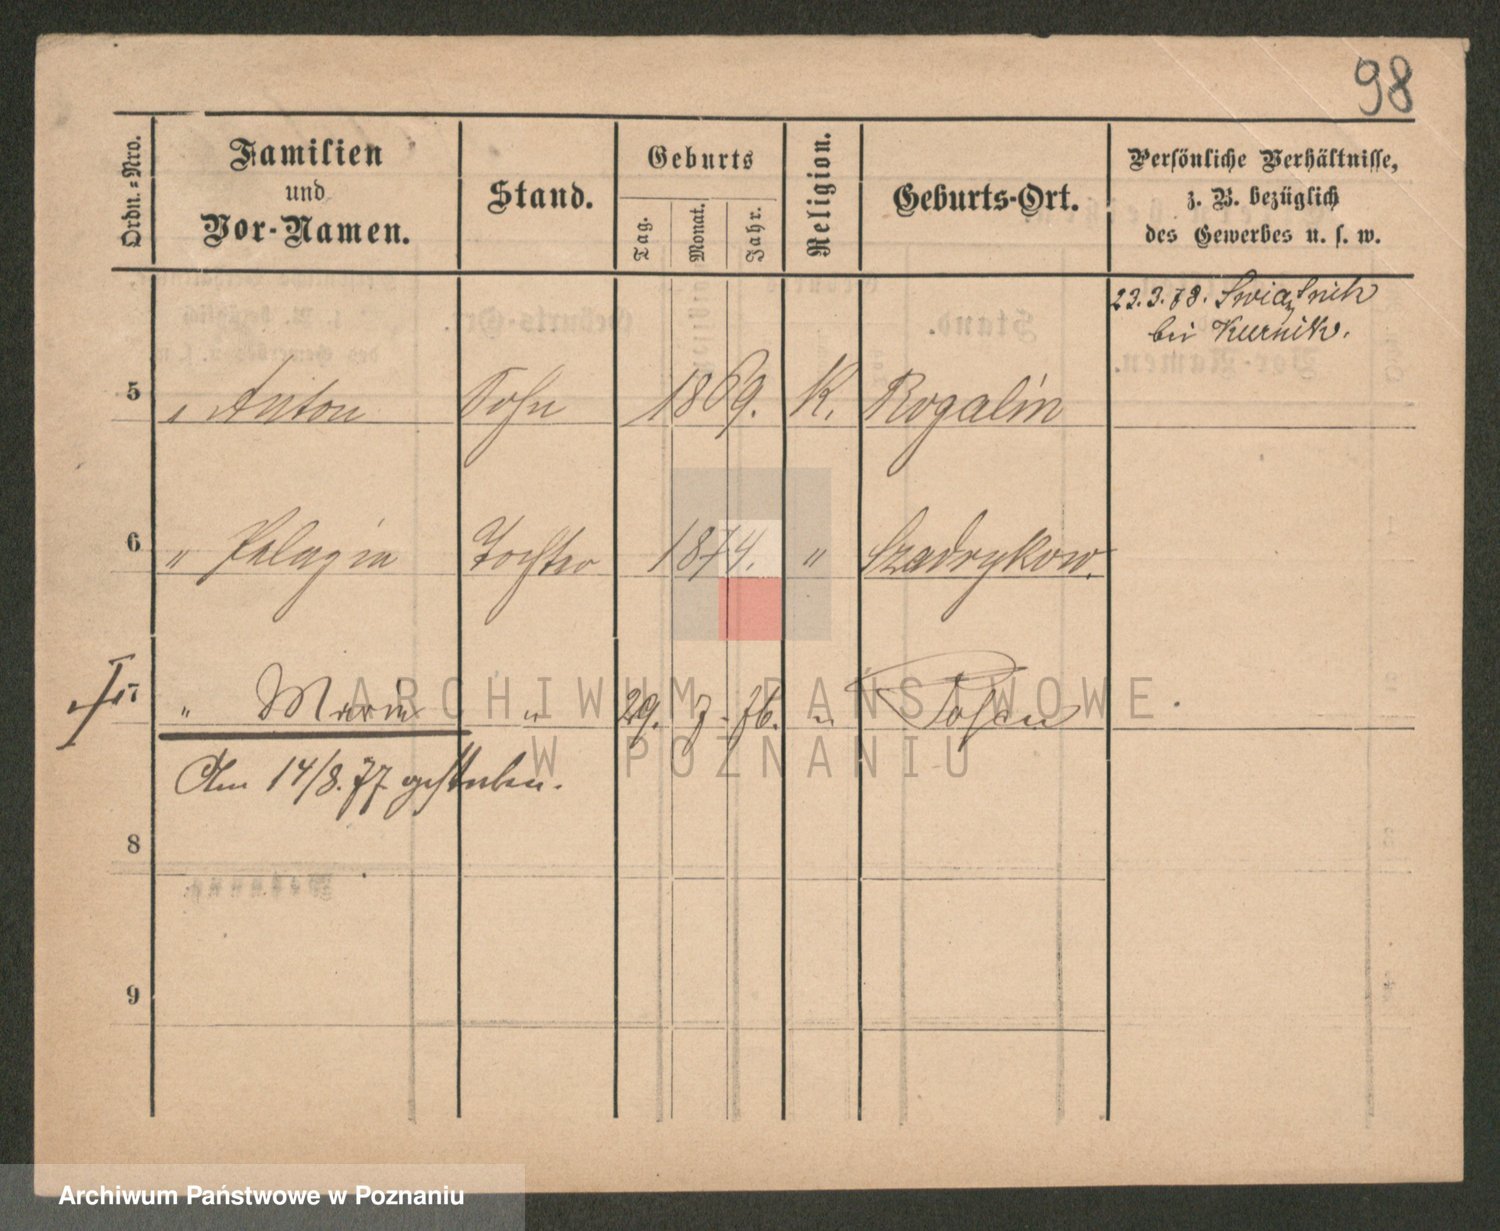 98
Ordn.=Nro.
Familien
und
Vor-Namen.
Stand.
Geburts
Tag.
Monat.
Jahr.
Religion.
Geburts-Ort.
Persönliche Verhältnisse,
z. B. bezüglich
des Gewerbes u. s. w.
23.3.78. Swiątnik
bei Kurnik.
5 " Anton Sohn 1869. K. Rogalin
6 " Pelagia Tochter 1874. " Szadrykow.
7 " Maria " 29. 7. 76. " Posen
Am 14/8.77 gestorben.
8
9
ARCHIWUM PAŃSTWOWE
W POZNANIU
Archiwum Państwowe w Poznaniu